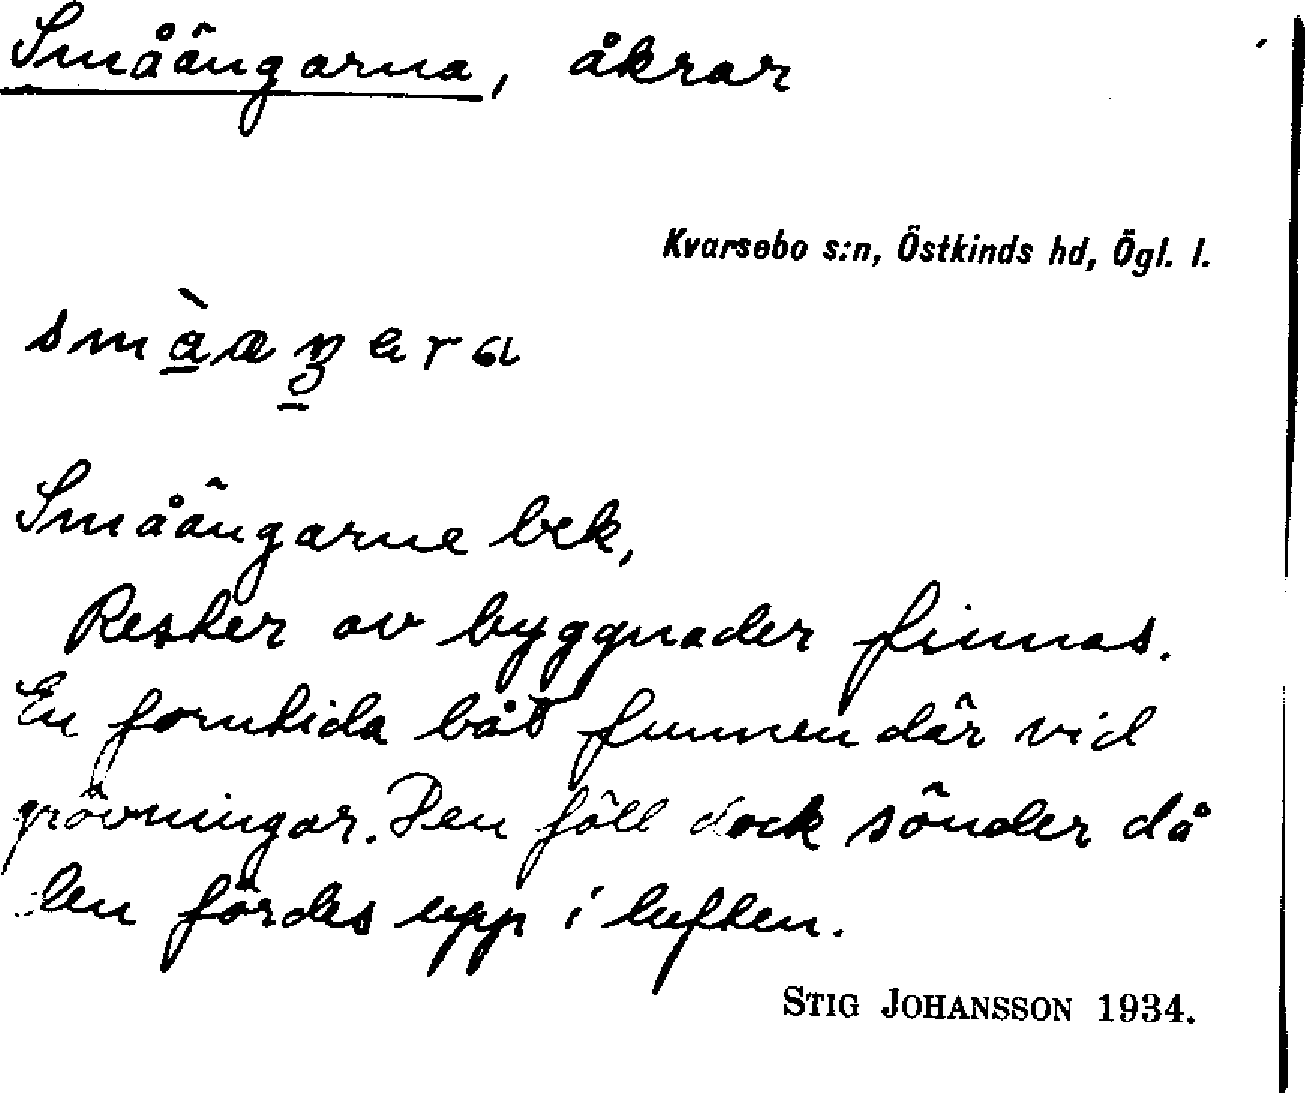 Småängarna, åkrar
Kvarsebo s:n, Östkinds hd, Ögl. l.
Småängarne bek,
Rester av byggnader finnas.
En forntida båt funnen där vid
grävningar. Den föll dock sönder då
den fördes upp i luften.
STIG JOHANSSON 1934.